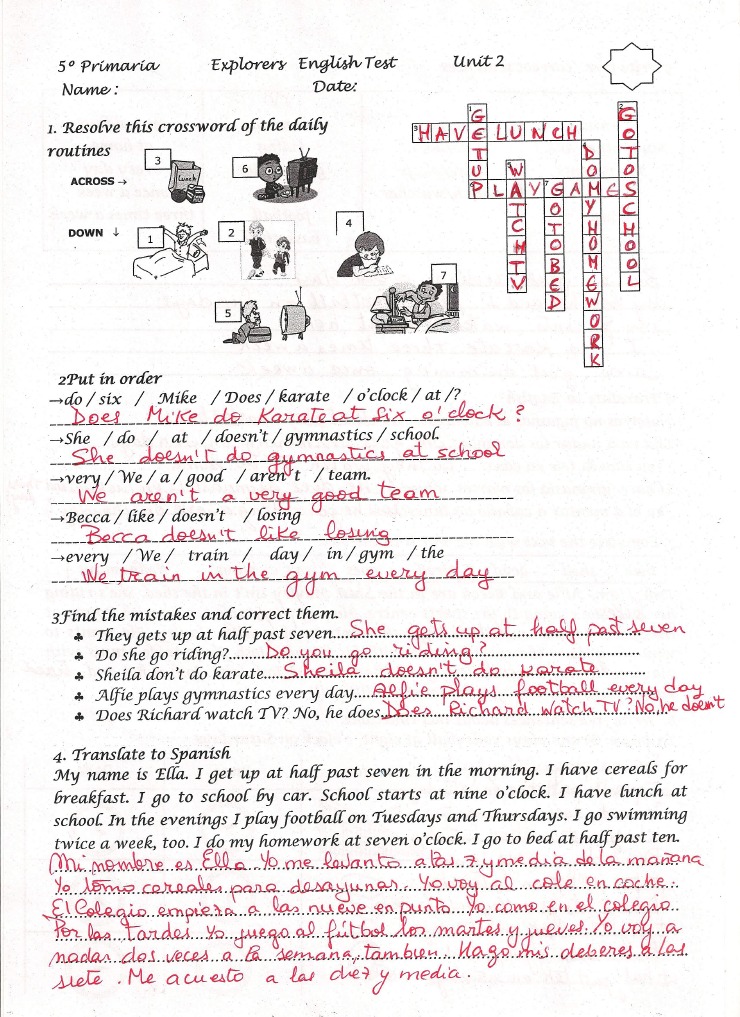 5º Primaria Explorers English Test Unit 2
Name : Date:
1. Resolve this crossword of the daily
routines
ACROSS →
DOWN ↓
3
Lunch
6
1
2
4
5
7
GET UP
GO TO SCHOOL
HAVE LUNCH
DO MY HOMEWORK
WATCH TV
PLAY GAMES
GO TO BED
2Put in order
→do / six / Mike / Does / karate / o'clock / at /?
Does Mike do Karate at six o'clock ?
→She / do / at / doesn't / gymnastics / school.
She doesn't do gymnastics at school
→very / We / a / good / aren't / team.
We aren't a very good team
→Becca / like / doesn't / losing
Becca doesn't like losing
→every / We / train / day / in / gym / the
We train in the gym every day
3Find the mistakes and correct them.
♣ They gets up at half past seven....She gets up at half past seven
♣ Do she go riding?.......Do you go riding?
♣ Sheila don't do karate....Sheila doesn't do karate
♣ Alfie plays gymnastics every day....Alfie plays football every day
♣ Does Richard watch TV? No, he does..Does Richard watch TV? No, he doesn't
4. Translate to Spanish
My name is Ella. I get up at half past seven in the morning. I have cereals for
breakfast. I go to school by car. School starts at nine o'clock. I have lunch at
school. In the evenings I play football on Tuesdays and Thursdays. I go swimming
twice a week, too. I do my homework at seven o'clock. I go to bed at half past ten.
Mi nombre es Ella. Yo me levanto a las 7 y media de la mañana
Yo tomo cereales para desayunar. Yo voy al cole en coche.
El Colegio empieza a las nueve en punto. Yo como en el colegio
Por las tardes Yo juego al fútbol los martes y jueves. Yo voy a
nadar dos veces a la semana, tambien. Hago mis deberes a las
siete. Me acuesto a las diez y media.